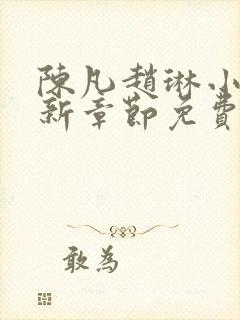 陳凡趙琳小
新章節免費
敢為